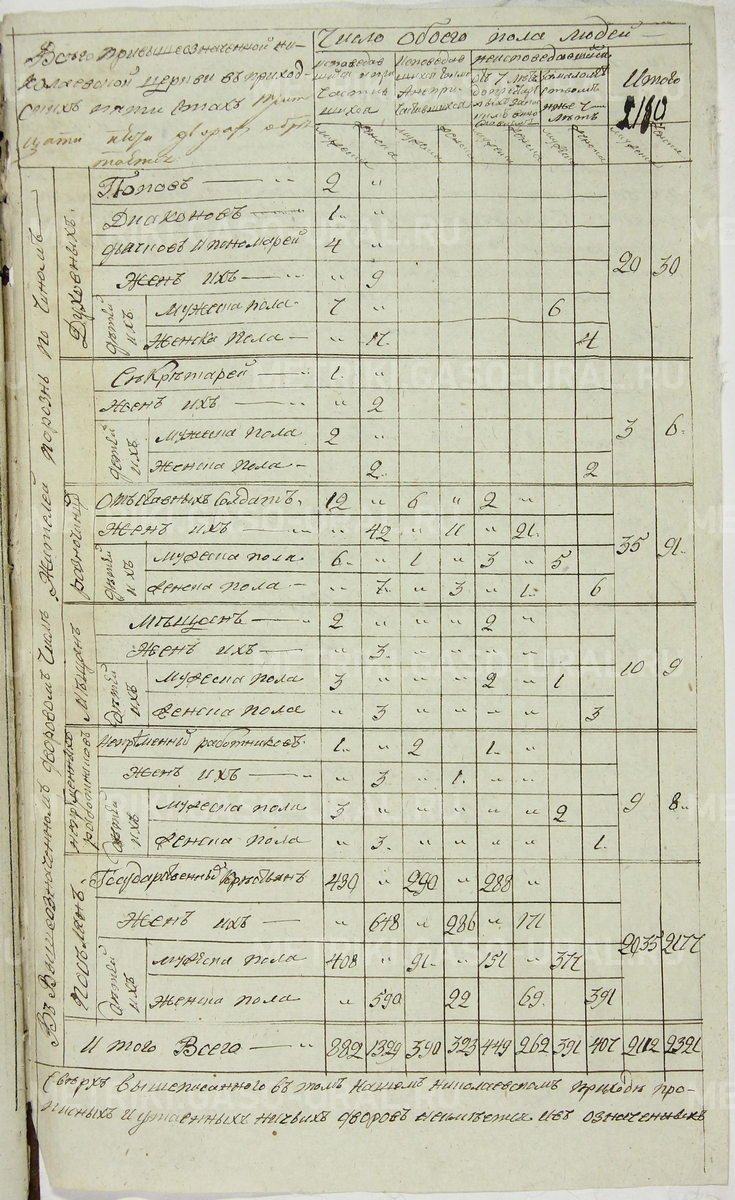 Всего при вышеозначенной ни-
колаевской церкви в приход-
ских пяти стах трит
цати
Число обоего пола людей
исповедав
шихся и при
частив
шихся
Исповедав
шихся
а не при
частившихся
неисповедавшихся
Итого
2180
Въ вышеозначенномъ дворовомъ числѣ жителей порознь по чиномъ
Духовныхъ
Поповъ 2 "
Диаконовъ 1 "
дьячковъ и пономарей 4 " 20 30
Женъ ихъ " 9
дѣтей ихъ
Мужеска пола 7 " 6
Женска пола " 17 4
Секретарей 1 "
Женъ ихъ " 2 3 6
дѣтей ихъ
Мужеска пола 2 "
Женска пола " 2 2
разночинцы
Отставныхъ солдатъ 12 " 6 " 2 "
Женъ ихъ " 42 " 11 " 21 35 91
дѣтей ихъ
Мужеска пола 6 " 1 " 3 " 5
Женска пола " 7 " 3 " 1 6
Мѣщанъ
Мѣщанъ 2 " " " 2 "
Женъ ихъ " 3 " " " " 10 9
дѣтей ихъ
Мужеска пола 3 " " " 2 " 1
Женска пола " 3 " " " " 3
непременныхъ работниковъ
непременныхъ работниковъ 1 " 2 1 "
Женъ ихъ " 3 " 1 " " 9 8
дѣтей ихъ
Мужеска пола 3 " " " " " 2
Женска пола " 3 " " " " 1
Государственныхъ крестьянъ 430 " 290 " 288 "
Женъ ихъ " 648 " 286 " 171 2035 2177
дѣтей ихъ
Мужеска пола 408 " 91 " 151 " 377
Женска пола " 590 22 69 391
Итого Всего 882 1329 390 323 449 262 391 407 2112 2321
Сверхъ вышеписанного в томъ нашемъ николаевскомъ приходѣ про-
писныхъ и утаенныхъ ничьихъ дворовъ не имѣется и въ означенныхъ